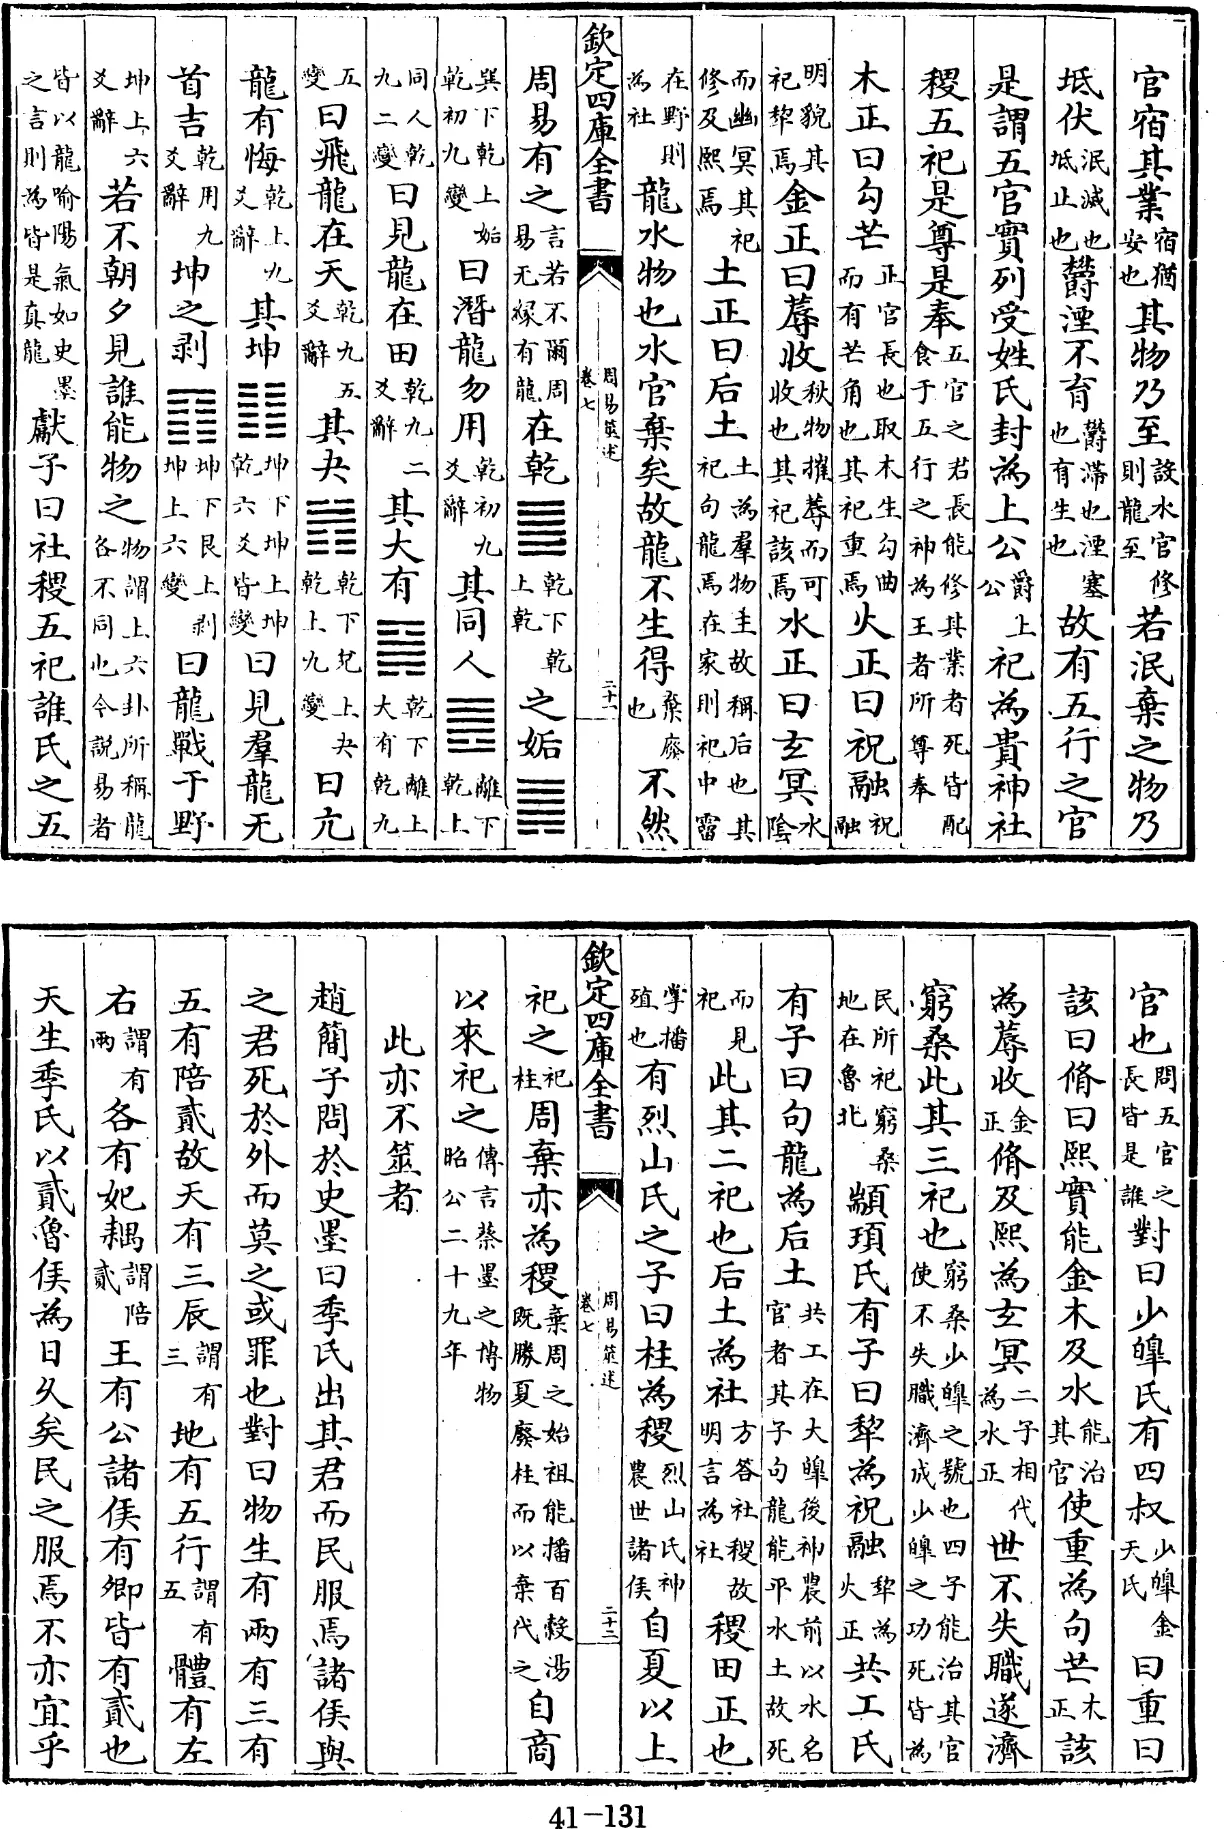 官宿其業宿猶安也其物乃至設水官修則龍至若泯棄之物乃
坻伏泯滅也坻止也鬱湮不育鬱滯也湮塞也有生也故有五行之官
是謂五官實列受姓氏封為上公爵上公祀為貴神社
稷五祀是尊是奉五官之君長能修其業者死皆配食于五行之神為王者所尊奉
木正曰勾芒正官長也取木生勾曲而有芒角也其祀重焉火正曰祝融祝融
明貌其祀犂焉金正曰蓐收秋物摧蓐而可收也其祀該焉水正曰玄冥水陰
而幽冥其祀修及熙焉土正曰后土土為羣物主故稱后也其祀句龍焉在家則祀中霤
在野則為社龍水物也水官棄矣故龍不生得棄廢也不然
欽定四庫全書 周易筮述 卷七 二十一
周易有之言若不爾周易无緣有龍在乾䷀乾下乾上乾之姤䷫
巽下乾上姤乾初九變曰潛龍勿用乾初九爻辭其同人䷌離下乾上
同人乾九二變曰見龍在田乾九二爻辭其大有䷍乾下離上大有乾九
五變曰飛龍在天乾九五爻辭其夬䷪乾下兌上夬乾上九變曰亢
龍有悔乾上九爻辭其坤䷁坤下坤上坤乾六爻皆變曰見羣龍无
首吉乾用九爻辭坤之剥䷖坤下艮上剥坤上六變曰龍戰于野
坤上六爻辭若不朝夕見誰能物之物謂上六卦所稱龍各不同也今說易者
皆以龍喻陽氣如史墨之言則為皆是真龍獻子曰社稷五祀誰氏之五
官也問五官之長皆是誰對曰少皥氏有四叔少皥金天氏曰重曰
該曰脩曰熙實能金木及水能治其官使重為句芒木正該
為蓐收金正脩及熙為玄冥二子相代為水正世不失職遂濟
窮桑此其三祀也窮桑少皥之號也四子能治其官使不失職濟成少皥之功死皆為
民所祀窮桑地在魯北顓頊氏有子曰犂為祝融犂為火正共工氏
有子曰句龍為后土共工在大皥後神農前以水名官者其子句龍能平水土故死
而見祀此其二祀也后土為社方答社稷故明言為社稷田正也
掌播殖也有烈山氏之子曰柱為稷烈山氏神農世諸侯自夏以上
欽定四庫全書 周易筮述 卷七 二十二
祀之祀柱周棄亦為稷棄周之始祖能播百穀湯既勝夏廢柱而以棄代之自商
以來祀之傳言蔡墨之博物昭公二十九年
此亦不筮者
趙簡子問於史墨曰季氏出其君而民服焉諸侯與
之君死於外而莫之或罪也對曰物生有兩有三有
五有陪貳故天有三辰謂有三地有五行謂有五體有左
右謂有兩各有妃耦謂陪貳王有公諸侯有卿皆有貳也
天生季氏以貳魯侯為日久矣民之服焉不亦宜乎
41-131